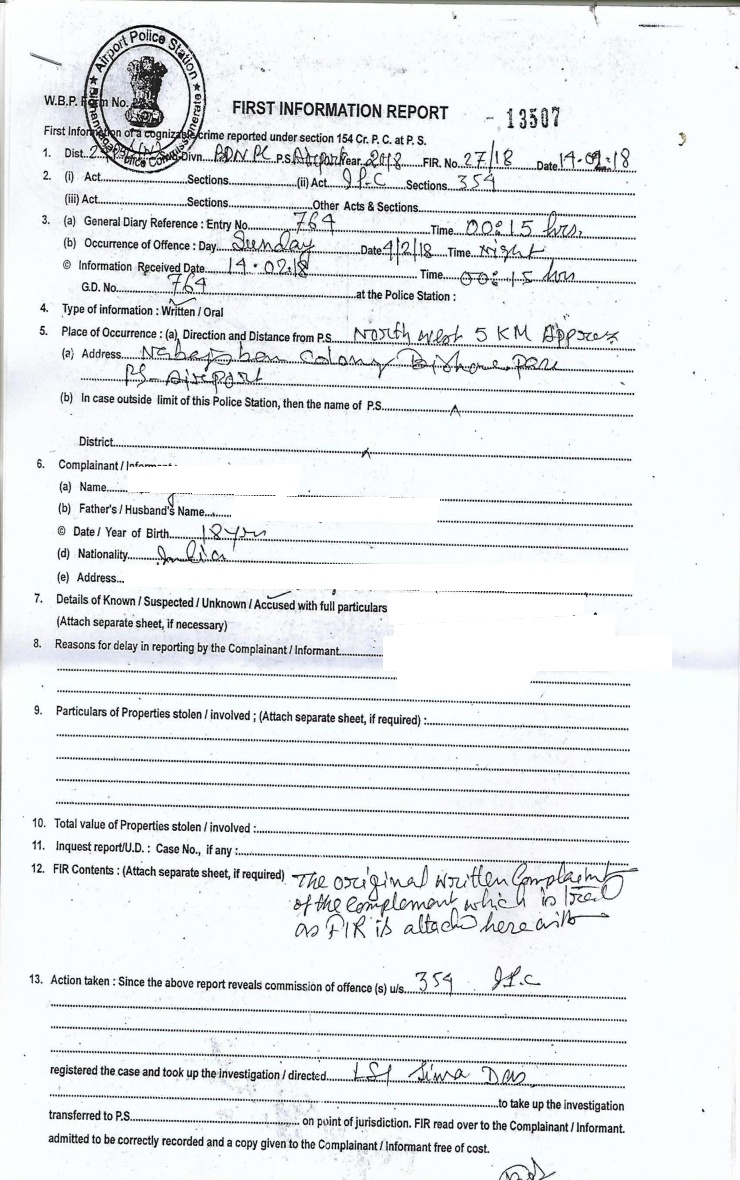 Airport Police Station
W.B.P. Form No.
FIRST INFORMATION REPORT - 13507
First Information of a cognizable crime reported under section 154 Cr. P. C. at P. S.
1. Dist. Divn. BDN PC P.S. Airport Year 2018 FIR. No. 27/18 Date 14-02-18
2. (i) Act Sections (ii) Act I.P.C Sections 354
(iii) Act Sections Other Acts & Sections
3. (a) General Diary Reference : Entry No. 764 Time 00:15 hrs.
(b) Occurrence of Offence : Day Sunday Date 4/2/18 Time night
© Information Received Date 14.02.18 Time 00:15 hrs
G.D. No. 764 at the Police Station :
4. Type of information : Written / Oral
5. Place of Occurrence : (a) Direction and Distance from P.S. North West 5 KM Approx
(a) Address Colony
PS- Airport
(b) In case outside limit of this Police Station, then the name of P.S.
District
6. Complainant /
(a) Name
(b) Father's / Husband's Name
© Date / Year of Birth 18 yrs
(d) Nationality India
(e) Address
7. Details of Known / Suspected / Unknown / Accused with full particulars
(Attach separate sheet, if necessary)
8. Reasons for delay in reporting by the Complainant / Informant
9. Particulars of Properties stolen / involved ; (Attach separate sheet, if required) :
10. Total value of Properties stolen / involved :
11. Inquest report/U.D. : Case No., if any :
12. FIR Contents : (Attach separate sheet, if required) The original written Complaint
of the complement which is treated
as FIR is attach here with
13. Action taken : Since the above report reveals commission of offence (s) u/s. 354 I.P.C
registered the case and took up the investigation / directed LSI Sima Das
to take up the investigation
transferred to P.S. on point of jurisdiction. FIR read over to the Complainant / Informant.
admitted to be correctly recorded and a copy given to the Complainant / Informant free of cost.